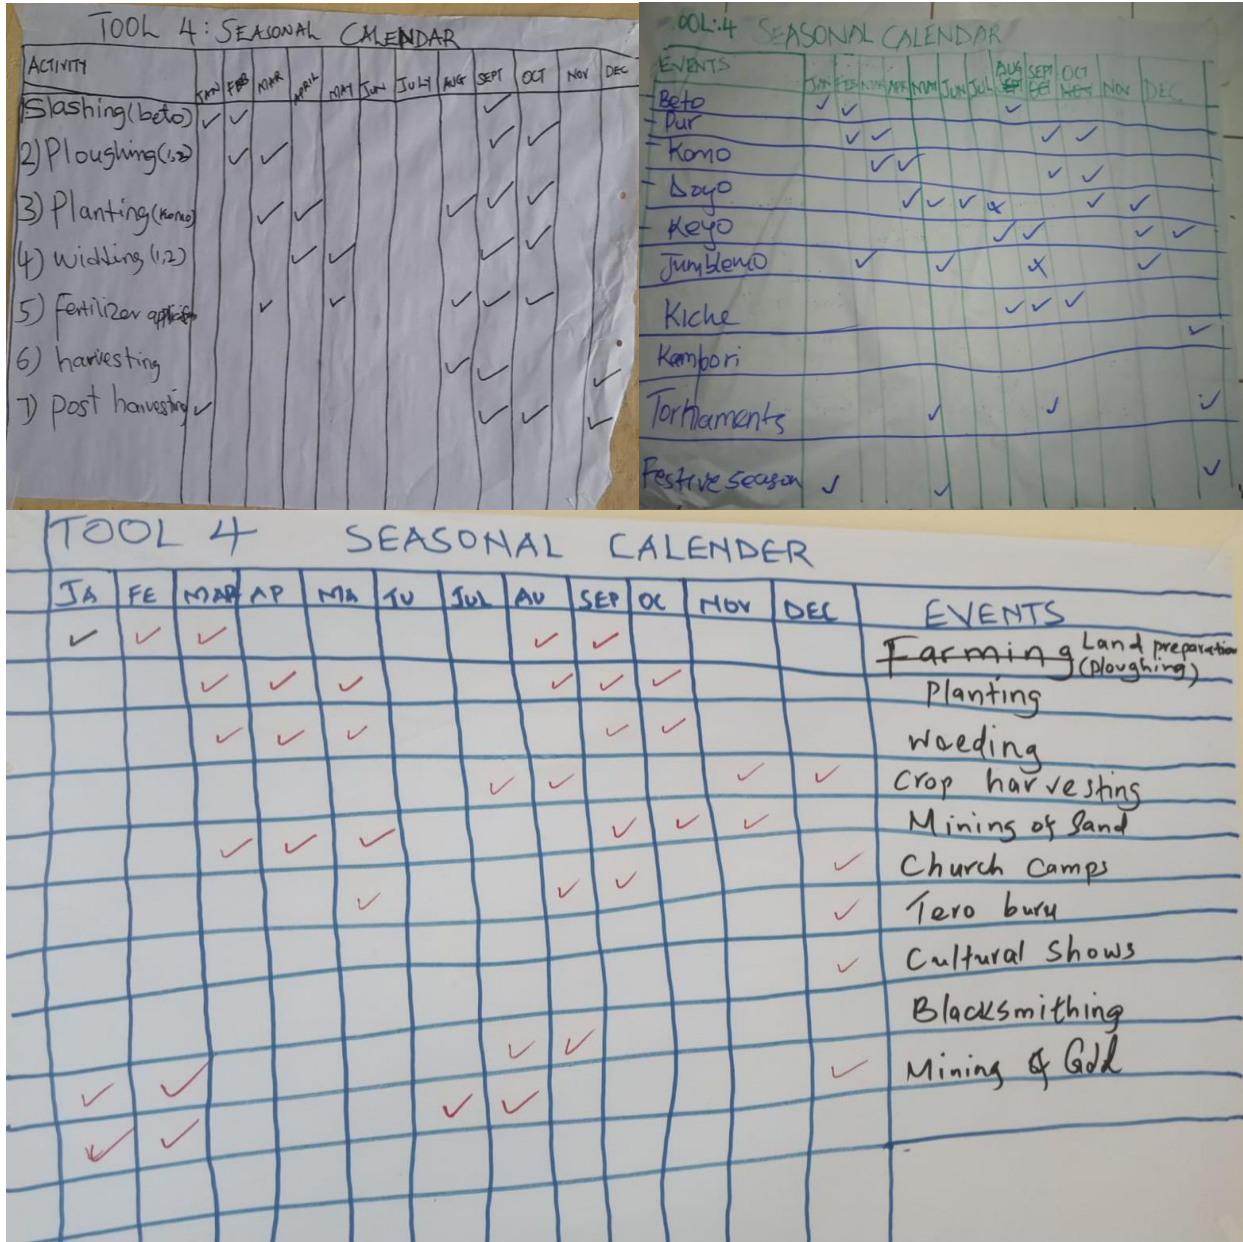 TOOL 4: SEASONAL CALENDAR
ACTIVITY JAN FEB MAR APRIL MAY JUN JULY AUG SEPT OCT NOV DEC
1) Slashing (beto) ✓ ✓ ✓
2) Ploughing (1,2) ✓ ✓ ✓ ✓
3) Planting (Komo) ✓ ✓ ✓ ✓ ✓
4) widding (1,2) ✓ ✓ ✓ ✓
5) Fertilizer ✓ ✓ ✓ ✓ ✓
6) harvesting ✓ ✓ ✓
7) post harvesting ✓ ✓ ✓ ✓
OOL:4 SEASONAL CALENDAR
EVENTS JAN FEB MAR APR MAY JUN JUL AUG SEPT OCT NOV DEC
- Beto ✓ ✓ ✓
- Pur ✓ ✓ ✓ ✓
- Komo ✓ ✓ ✓ ✓
- Doyo ✓ ✓ ✓ x ✓ ✓
- Keyo ✓ ✓ ✓ ✓
Jumblemo ✓ ✓ x ✓
Kiche ✓ ✓ ✓
Kambori ✓
Tornaments ✓ ✓ ✓
Festive season ✓ ✓ ✓
TOOL 4 SEASONAL CALENDER
JA FE MAR AP MA JU JUL AU SEP OC NOV DEC EVENTS
✓ ✓ ✓ ✓ ✓ Farming Land preparation
(ploughing)
✓ ✓ ✓ ✓ ✓ ✓ Planting
✓ ✓ ✓ ✓ ✓ Weeding
✓ ✓ ✓ ✓ Crop harvesting
✓ ✓ ✓ ✓ ✓ ✓ Mining of Sand
✓ ✓ ✓ ✓ Church Camps
✓ Tero buru
✓ Cultural Shows
✓ ✓ ✓ ✓ Blacksmithing
✓ ✓ ✓ ✓ ✓ Mining of Gold